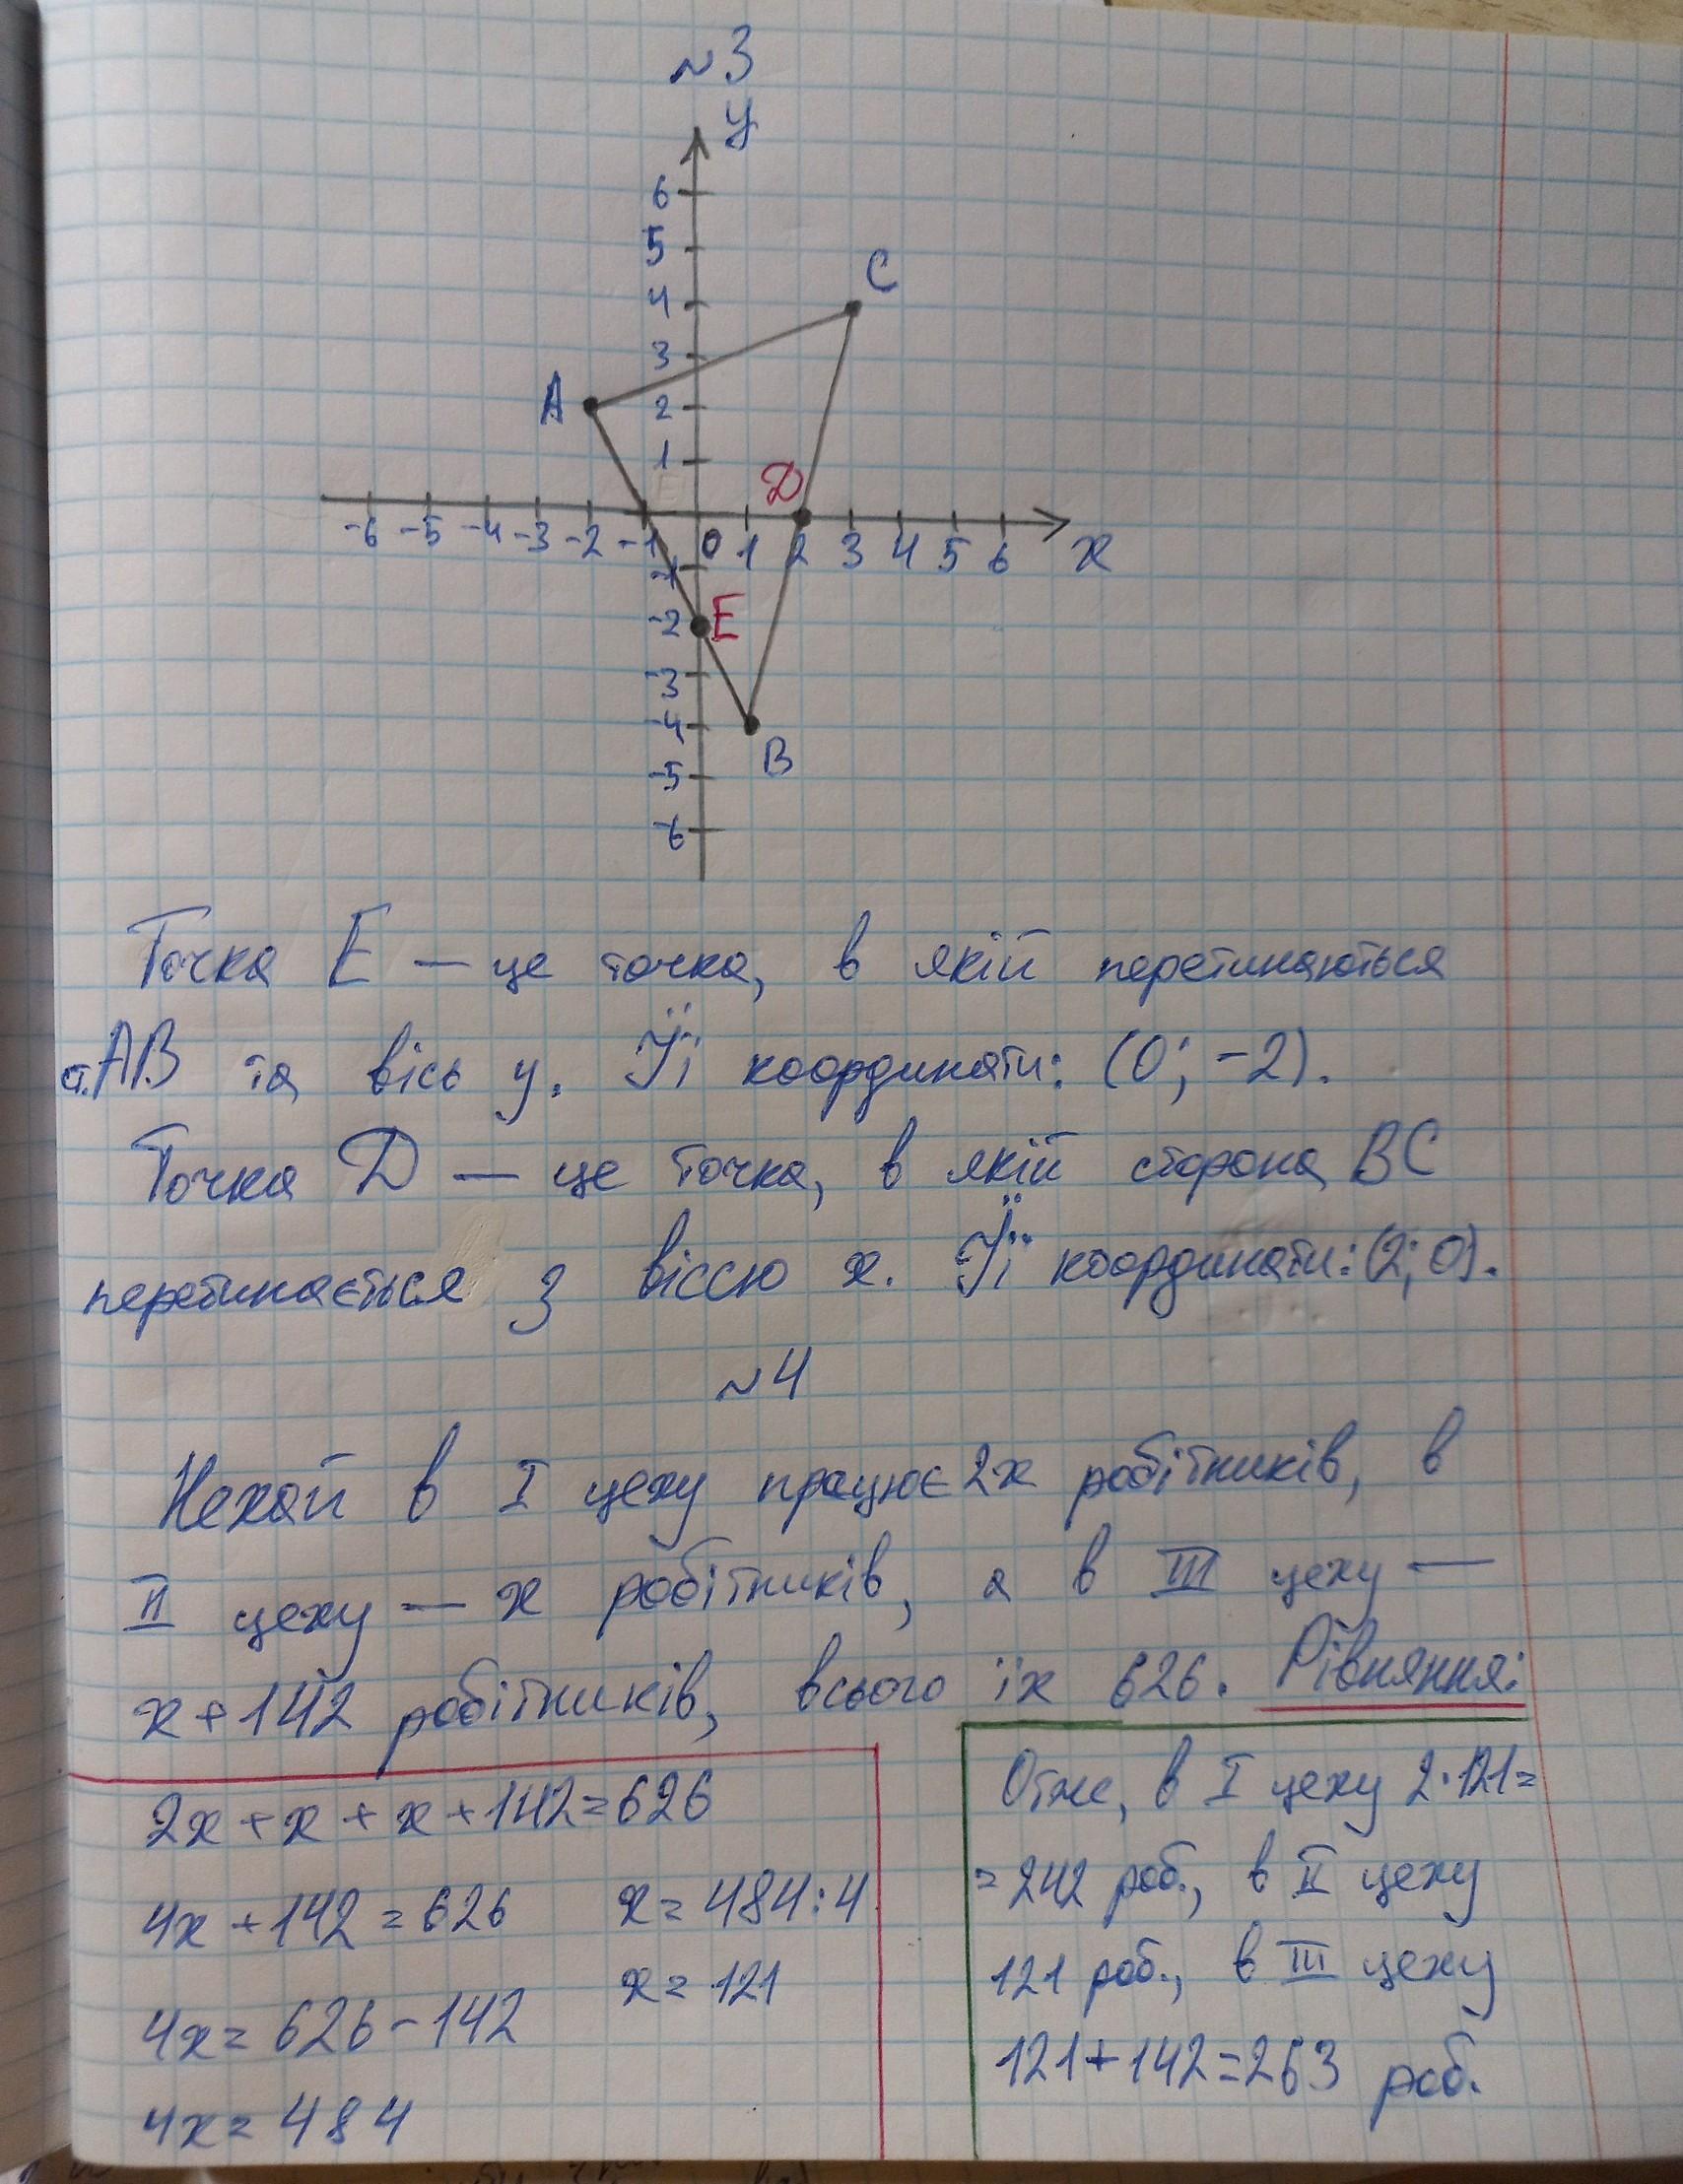 №3
y
6
5
C
4
3
A
2
1
D
-6 -5 -4 -3 -2 -1 0 1 2 3 4 5 6 x
-1
-2 E
-3
-4
B
-5
-6
Точка E — це точка, в якій перетинаються
ст. AB та вісь y. Її координати: (0; -2).
Точка D — це точка, в якій сторона BC
перетинається з віссю x. Її координати: (2; 0).
№4
Нехай в I цеху працює 2x робітників, в
II цеху — x робітників, а в III цеху —
x+142 робітників, всього їх 626. Рівняння:
2x+x+x+142=626
4x+142=626
4x=626-142
4x=484
x=484:4
x=121
Отже, в I цеху 2·121=
=242 роб., в II цеху
121 роб., в III цеху
121+142=263 роб.